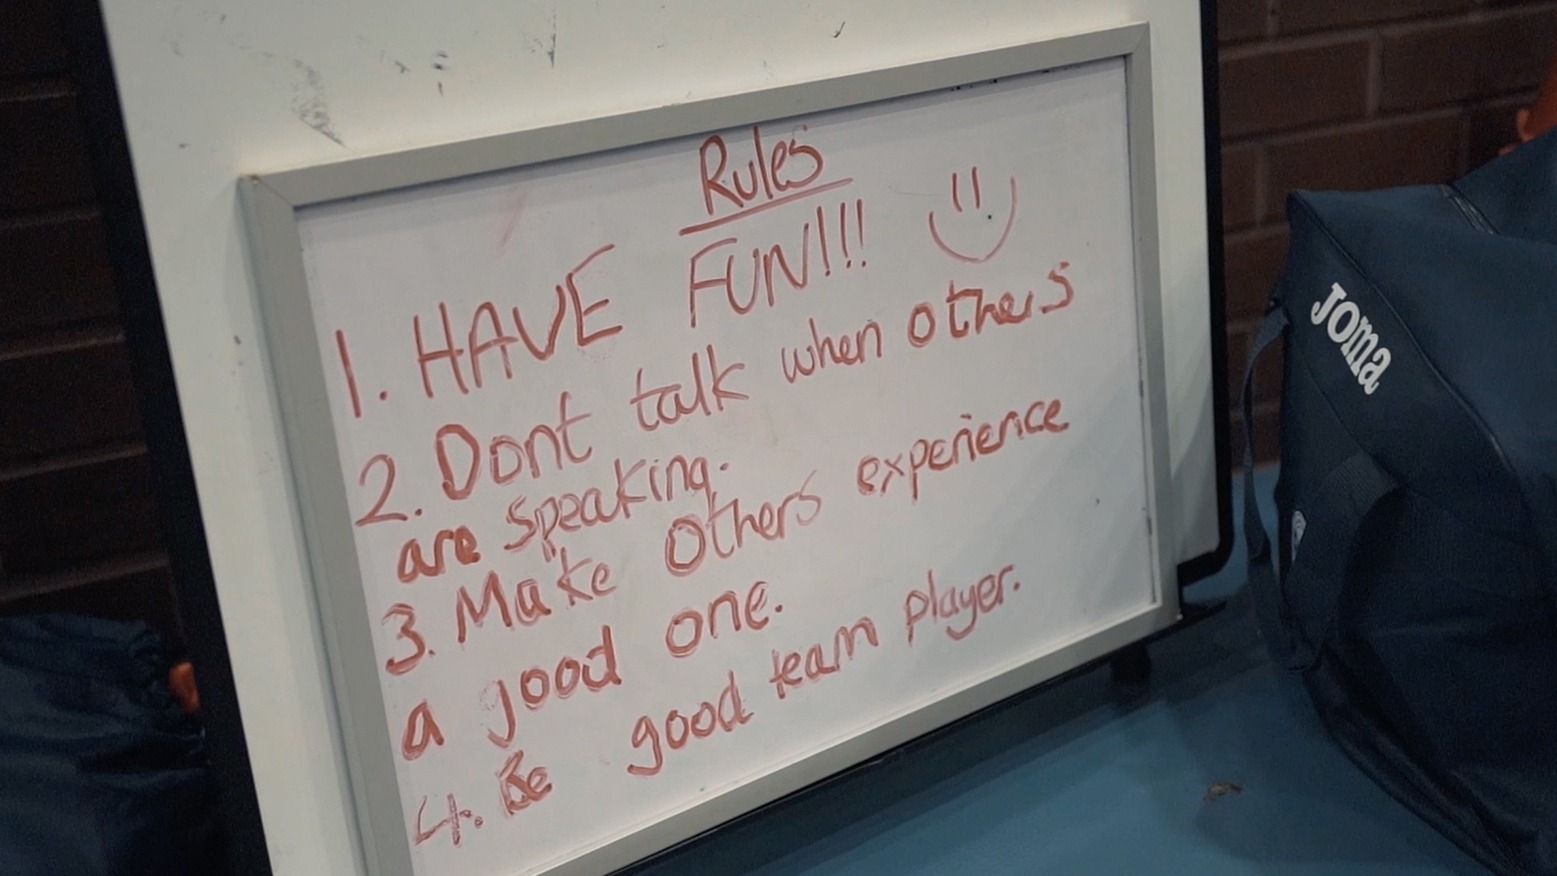 Rules
1. HAVE FUN!!!
2. Dont talk when others
are speaking.
3. Make Others experience
a good one.
4. Be good team player.
Joma